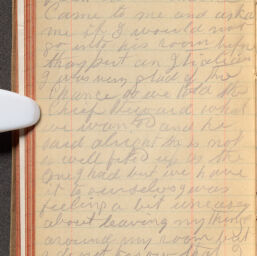 Came to me and asked
me if I would not
go into his room before
they put an Italian
I was very glad of the
chance so we told the
Chief Steward what
we wanted and he
said alright he is not
so well fixed up as the
one I had but we have
it to ourselves was
feeling a bit uneasy
about leaving my things
around my room but